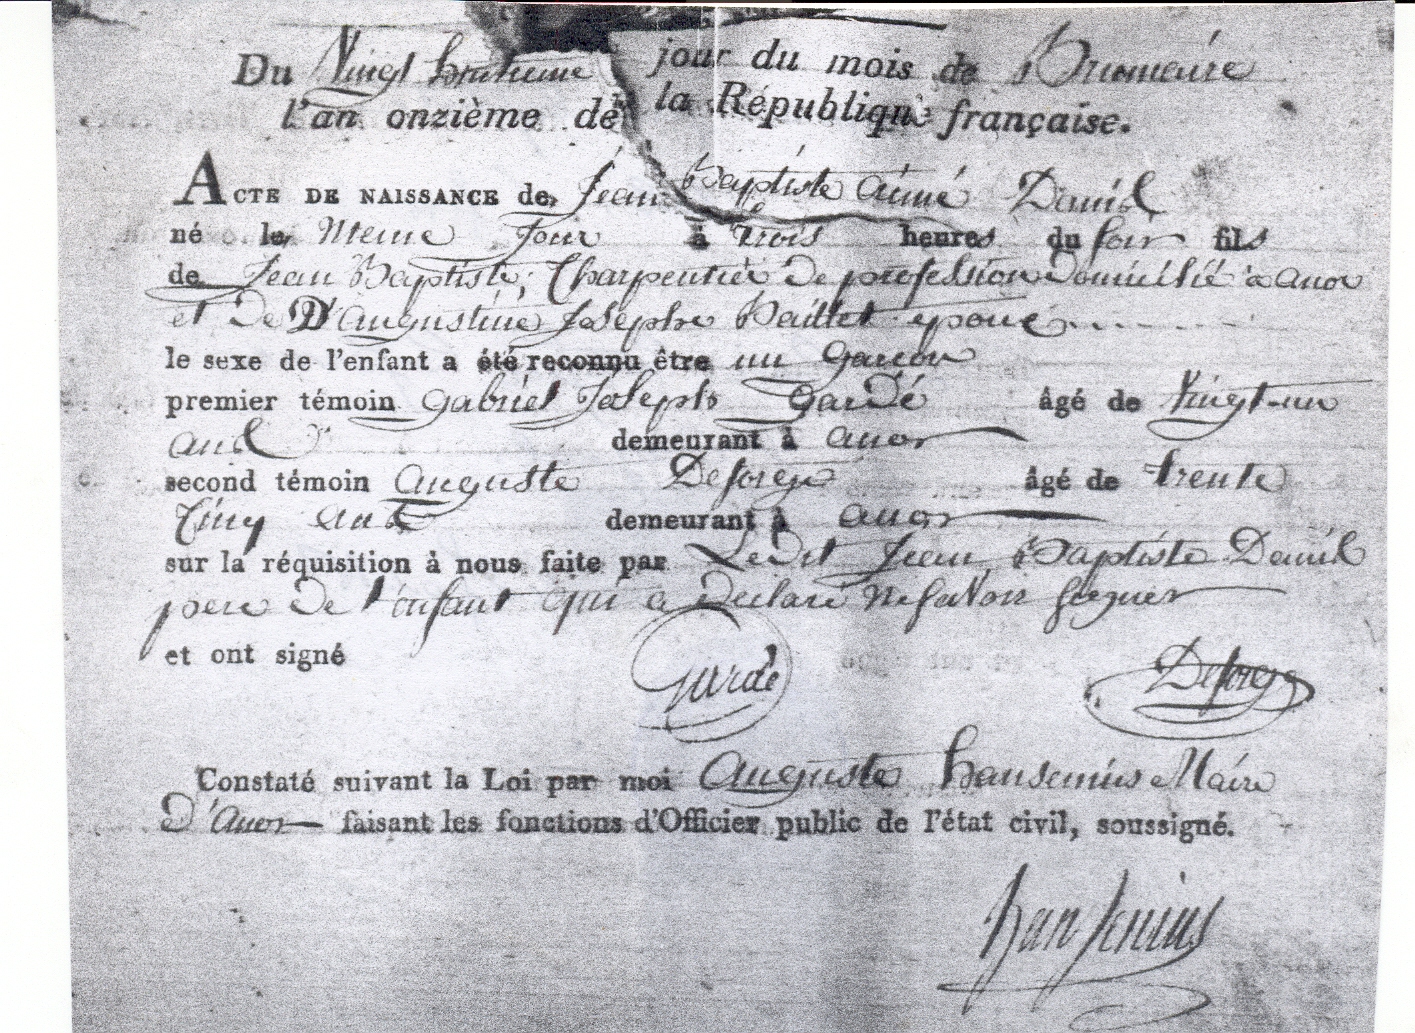 Du Vingt huitieme jour du mois de Brumaire
l'an onzième de la République française.
ACTE DE NAISSANCE de Jean Baptiste aimé Daniel
né le Meme Jour à trois heures du soir fils
de Jean Baptiste, Charpentier De profession Domicilié à anor
et De D'augustine Joseph Baillet epoux
le sexe de l'enfant a été reconnu être un Garcon
premier témoin gabriel Joseph Gardé âgé de Vingt-un
ans demeurant à anor
second témoin auguste Deforge âgé de trente
Cinq ans demeurant à anor
sur la réquisition à nous faite par Ledit Jean Baptiste Daniel
pere De l'enfant qui a Declaré ne savoir signer
et ont signé Gardé Deforge
Constaté suivant la Loi par moi auguste hansenius Maire
D'anor faisant les fonctions d'Officier public de l'état civil, soussigné.
hansenius